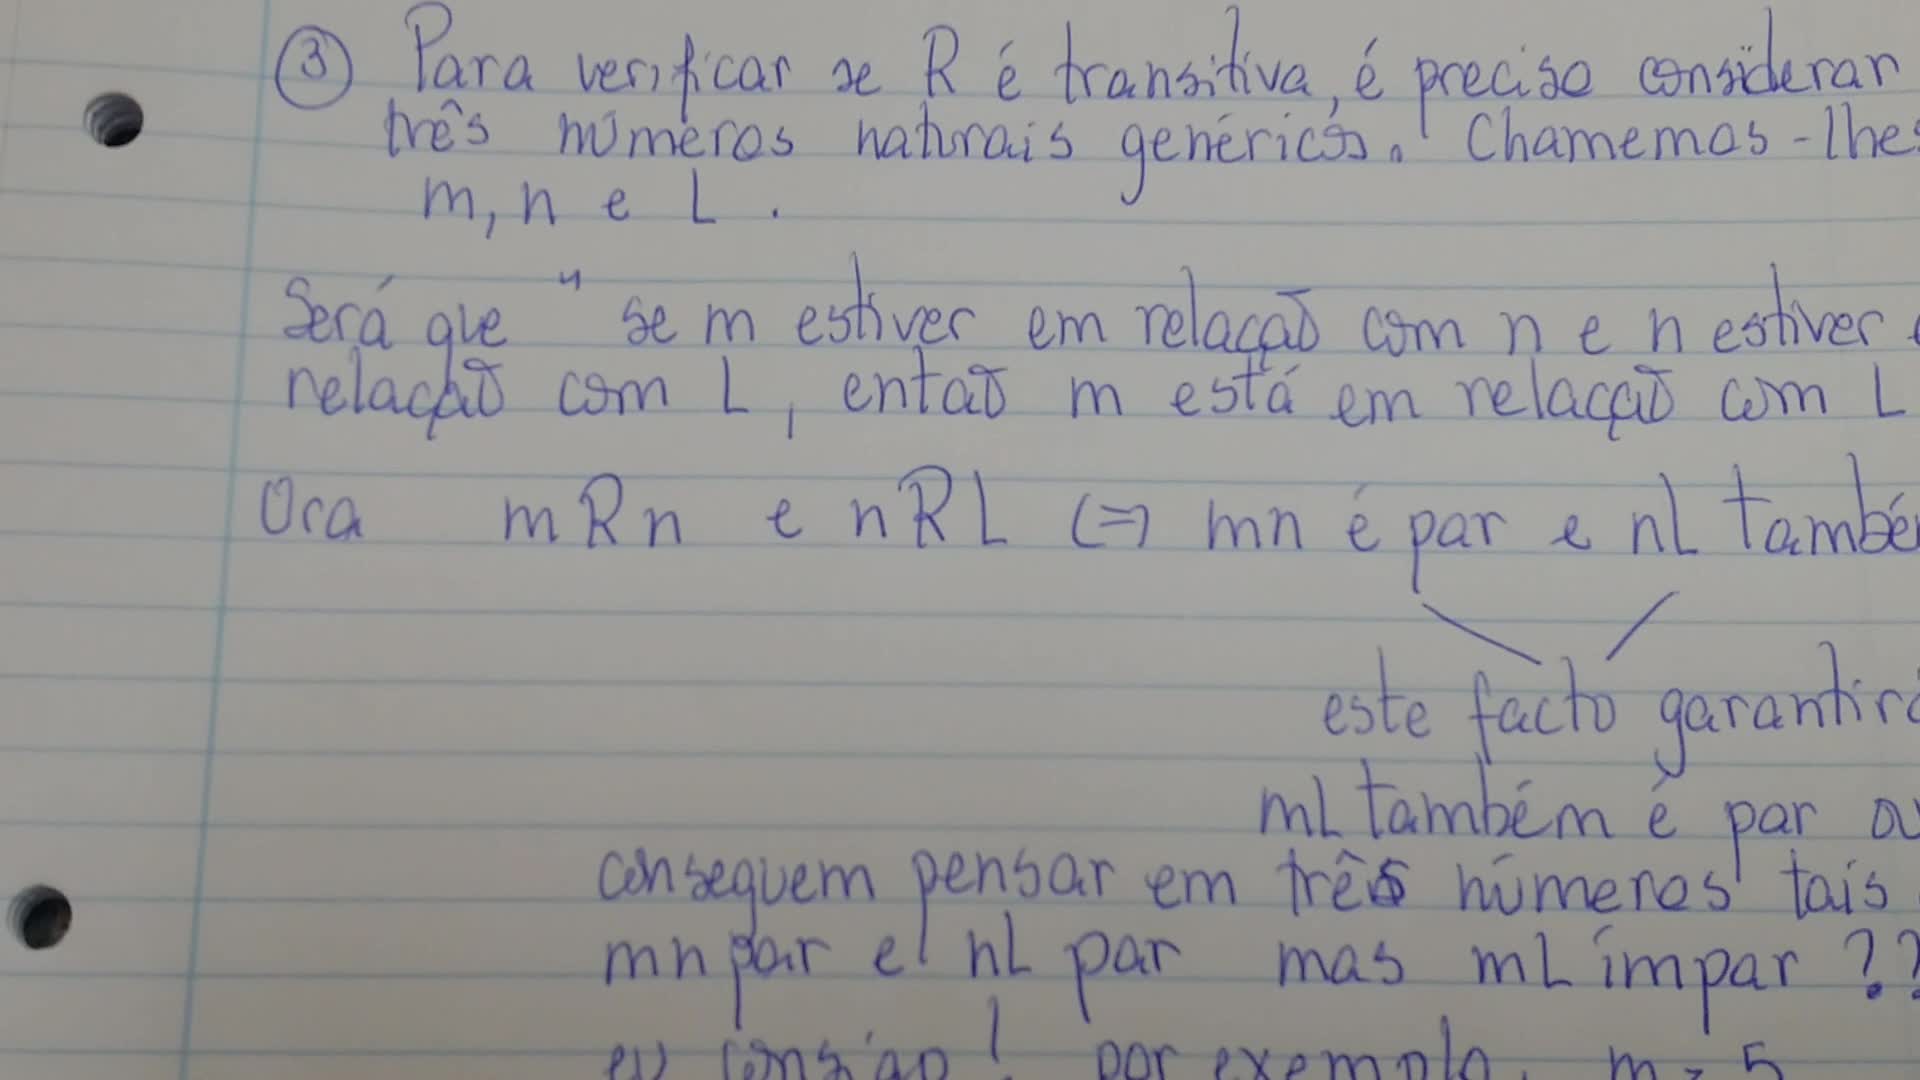 ③ Para verificar se R é transitiva, é preciso considerar
três números naturais genéricos. Chamemos-lhes
m, n e L.
Será que " se m estiver em relação com n e n estiver
relação com L, então m está em relação com L
Ora mRn e nRL (=) mn é par e nL também
este facto garantirá
mL também é par ou
conseguem pensar em três números tais
mn par e nL par mas mL ímpar ??
eu consigo! por exemplo, m = 5